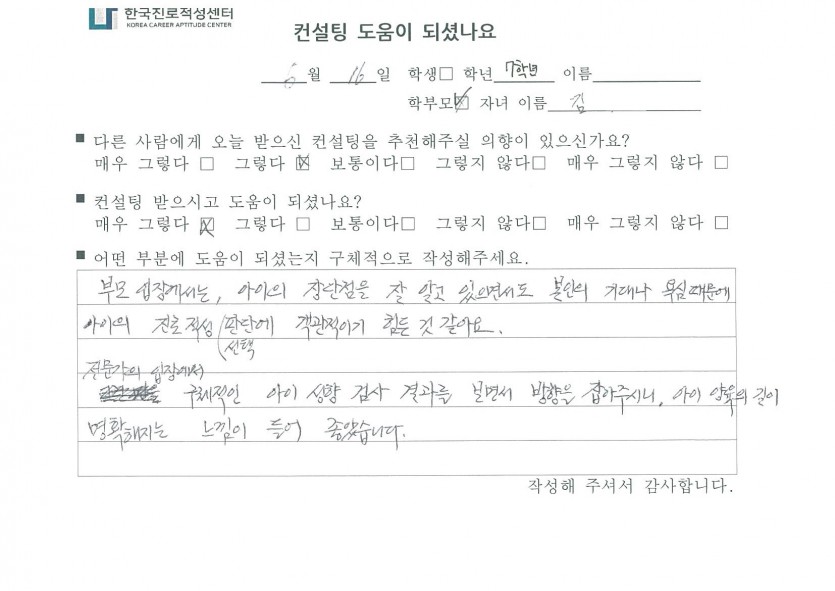 한국진로적성센터
KOREA CAREER APTITUDE CENTER
컨설팅 도움이 되셨나요
6월 16일 학생□ 학년 7학년 이름
학부모☑ 자녀 이름 김
■ 다른 사람에게 오늘 받으신 컨설팅을 추천해주실 의향이 있으신가요?
매우 그렇다 □ 그렇다 ☒ 보통이다□ 그렇지 않다□ 매우 그렇지 않다 □
■ 컨설팅 받으시고 도움이 되셨나요?
매우 그렇다 ☒ 그렇다 □ 보통이다□ 그렇지 않다□ 매우 그렇지 않다 □
■ 어떤 부분에 도움이 되셨는지 구체적으로 작성해주세요.
부모 입장에서는, 아이의 장단점을 잘 알고 있으면서도 본인의 기대나 욕심때문에
아이의 진로적성(판단에 객관적이기 힘든 것 같아요.
(선택
전문가의 입장에서
구체적인 아이 성향 검사 결과를 보면서 방향을 잡아주시니, 아이 양육의 길이
명확해지는 느낌이 들어 좋았습니다.
작성해 주셔서 감사합니다.